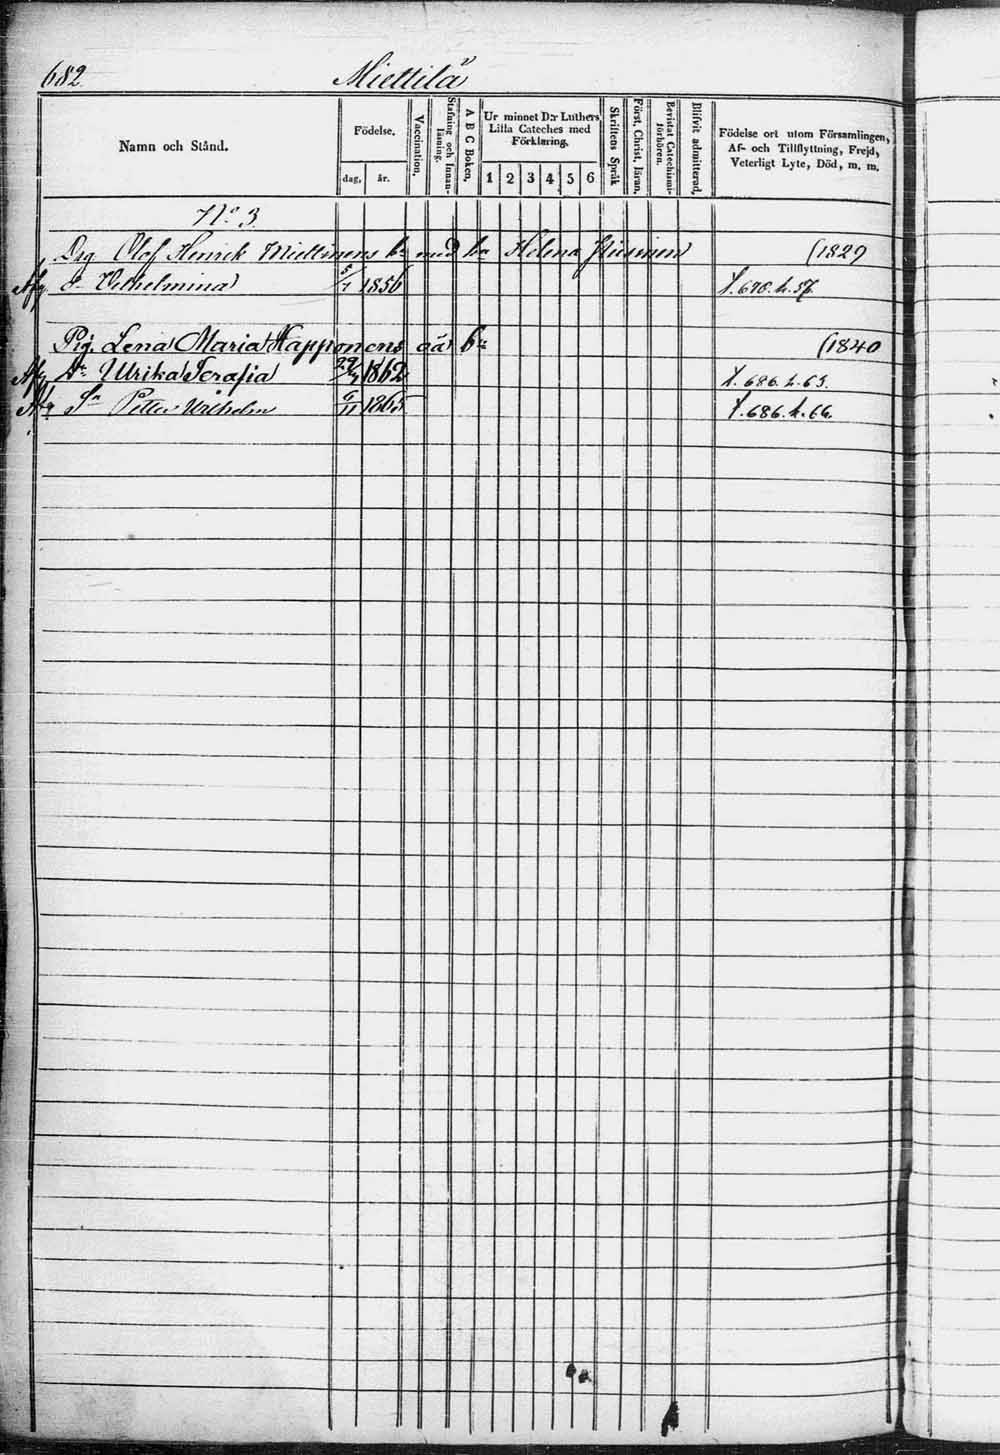 682 Miettilä
Namn och Stånd.
Födelse.
dag, år.
Vaccination.
Stafning och Innan-
läsning.
A B C Boken,
Ur minnet D:r Luthers
Lilla Cateches med
Förklaring.
1 2 3 4 5 6
Skriftens Språk
Först, Christ, läran,
Bevistat Catechismi-
förhören.
Blifvit admitterad,
Födelse ort utom Församlingen,
Af- och Tillflyttning, Frejd,
Veterligt Lyte, Död, m. m.
No 3
Drg Olof Henrik Miettinens bn med hu Helena (1829
Afg dr Vilhelmina 5/1 1856 f. 678. h. 57.
Pig. Lena Maria Happonens oä bn (1840
Afg dr Ulrika Serafia 1862 f. 686. h. 63.
Afg Sn Petter Wilhelm 6/11 1865 f. 686. h. 66.